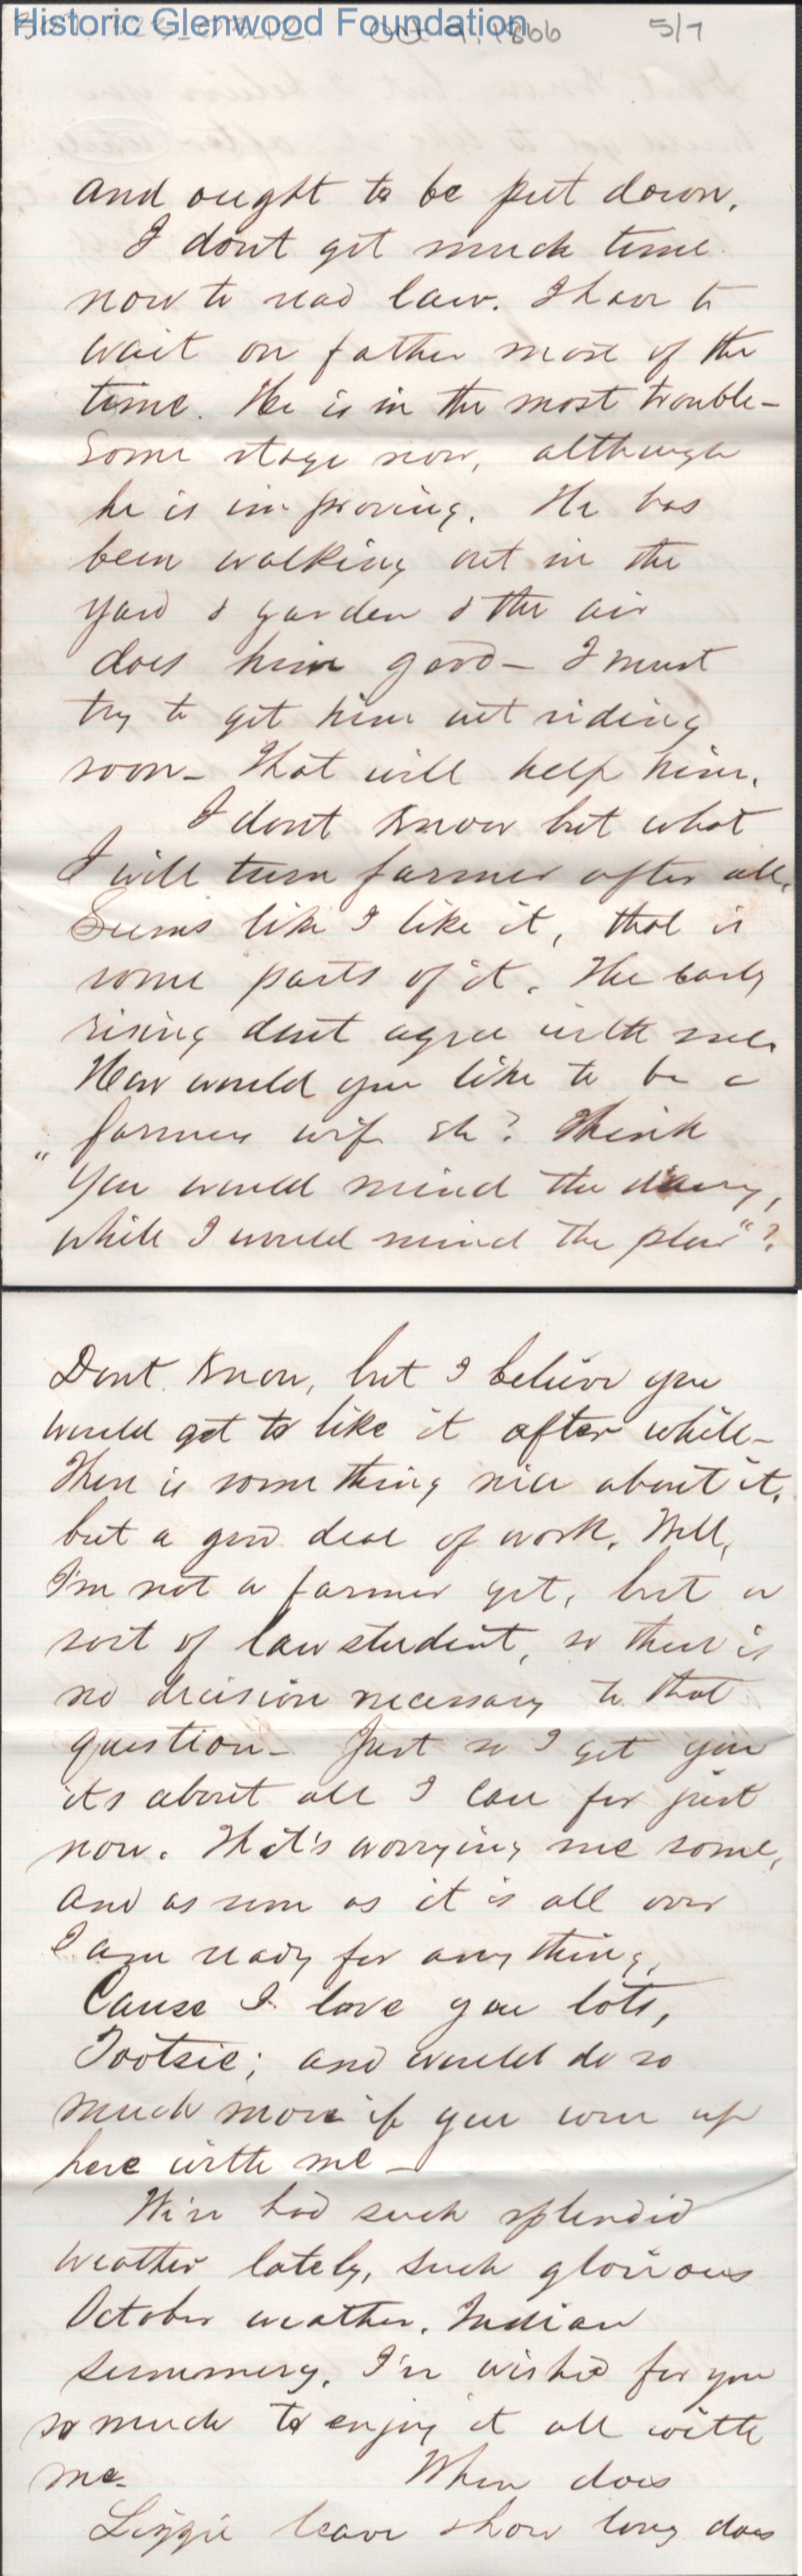 Historic Glenwood Foundation
Oct 9, 1866 5/7
and ought to be put down.
I dont get much time
now to read law. I have to
wait on father most of the
time. He is in the most trouble-
some stage now, although
he is improving. He has
been walking out in the
yard & garden & the air
does him good - I must
try to get him out riding
soon - That will help him.
I dont know but what
I will turn farmer after all.
Seems like I like it, that is
some parts of it. The early
rising dont agree with me.
How would you like to be a
farmers wife eh? Think
"You would mind the dairy,
while I would mind the plow"?
Dont know, but I believe you
would get to like it after while -
There is something nice about it,
but a good deal of work. Well,
I'm not a farmer yet, but a
sort of law student, so there is
no decision necessary to that
question - Just so I get you
its about all I care for just
now. That's worrying me some,
and as soon as it is all over
I am ready for anything,
Cause I love you lots,
Tootsie; and would do so
much more if you were up
here with me -
We've had such splendid
weather lately, such glorious
October weather. Indian
summery. I've wished for you
so much to enjoy it all with
me. When does
Lizzie leave & how long does